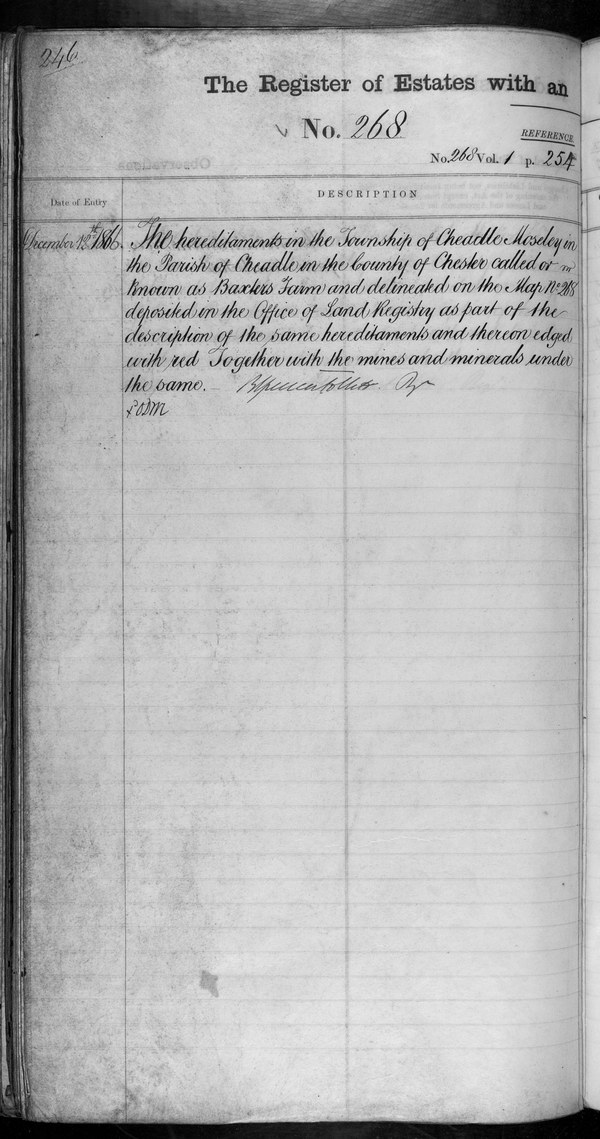 246
The Register of Estates with an
No. 268
REFERENCE
No. 268 Vol. 1 p. 254
Date of Entry
DESCRIPTION
December 1866. The hereditaments in the Township of Cheadle Moseley in
the Parish of Cheadle in the County of Chester called or
known as Baxters Farm and delineated on the Map No 268
deposited in the Office of Land Registry as part of the
description of the same hereditaments and thereon edged
with red Together with the mines and minerals under
the same.